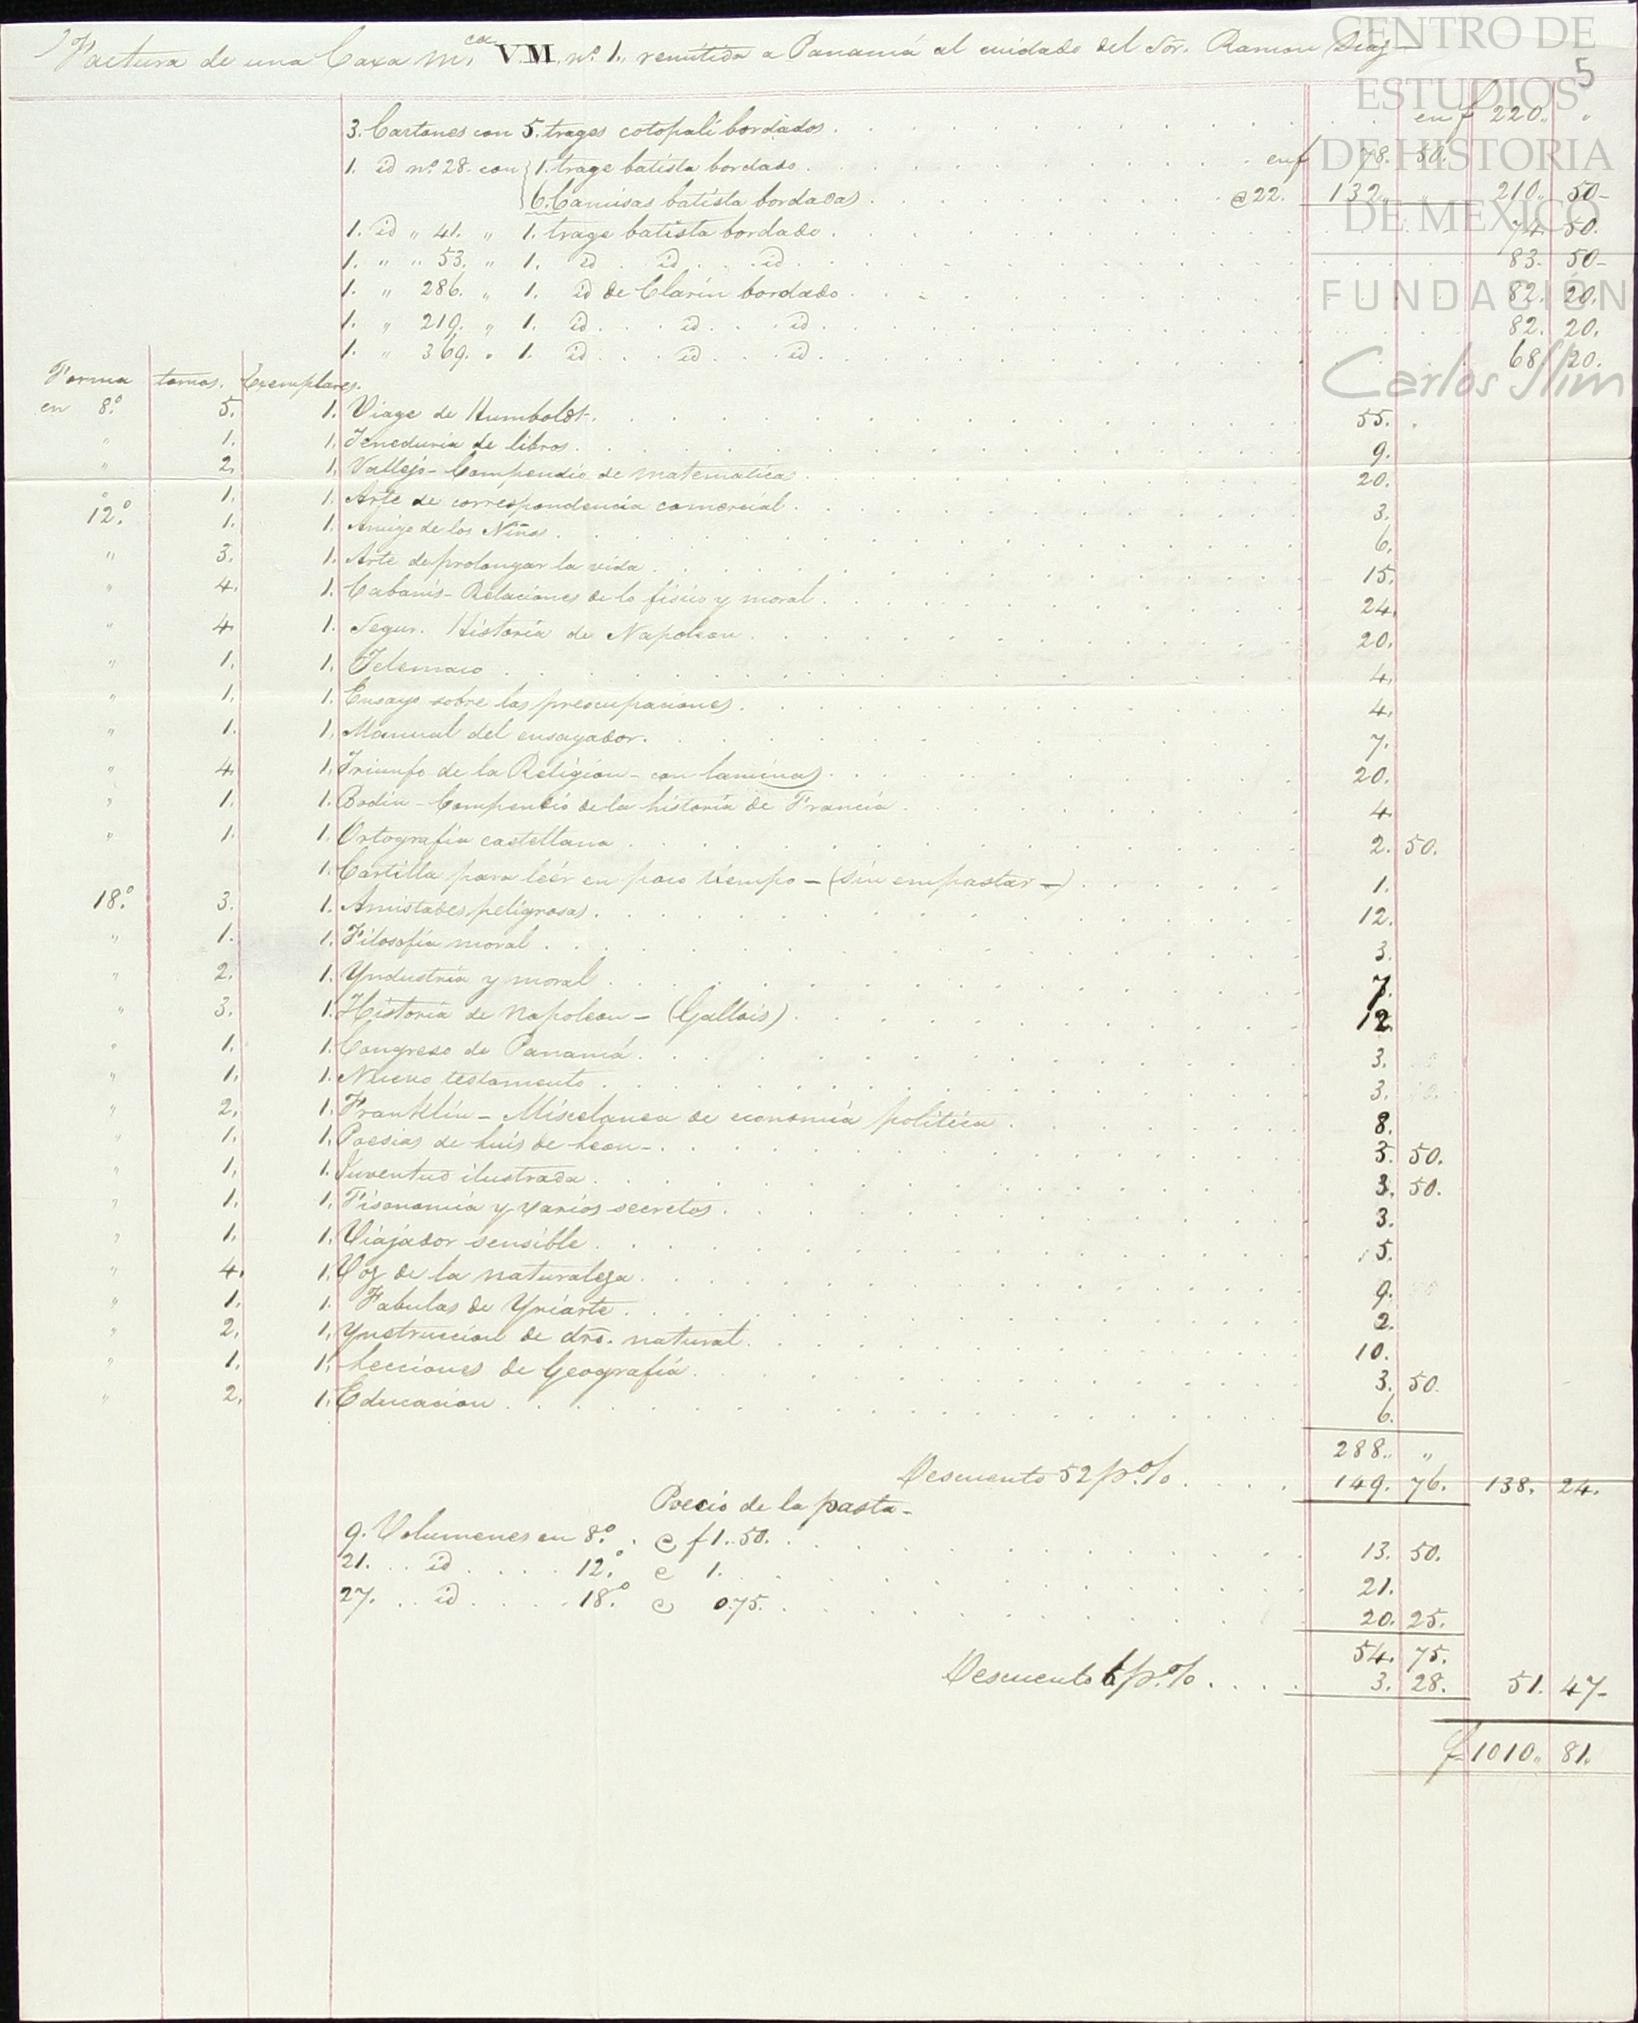 Factura de una Caxa m.ca V.M. nº 1., remitida a Panamá al cuidado del Sor. Ramon Diaz—
5
CENTRO DE
ESTUDIOS
DE HISTORIA
DE MEXICO
FUNDACIÓN
Carlos Slim
3. Cartones con 5. trages cotopali bordados. en f 220. „
1. id nº 28. con 1. trage batista bordado. en f 78. 50.
6. Camisas batista bordadas @ 22. 132. „ 210. 50-
1. id „ 41. „ 1. trage batista bordado. 74. 50.
1. „ „ 53. „ 1. id . id . id. 83. 50-
1. „ 286. „ 1. id de Clarin bordado. 82. 20.
1. „ 219. „ 1. id . id . id. 82. 20.
1. „ 369. „ 1. id . id . id. 68. 20.
Forma tomos. Exemplares.
en 8.º 5. 1. Viage de Humboldt. 55. „
„ 1. 1. Teneduria de libros. 9.
„ 2. 1. Vallejo- Compendio de matematica. 20.
„ 1. 1. Arte de correspondencia comercial. 3.
12.º 1. 1. Amigo de los Niños. 6.
„ 3. 1. Arte de prolongar la vida. 15.
„ 4. 1. Cabanis- Relaciones de lo fisico y moral. 24.
„ 4. 1. Segur. Historia de Napoleon. 20.
„ 1. 1. Telemaco. 4.
„ 1. 1. Ensayo sobre las preocupaciones. 4.
„ 1. 1. Manual del ensayador. 7.
„ 4. 1. Triunfo de la Religion- con laminas). 20.
„ 1. 1. Bodin- Compendio de la historia de Francia. 4.
„ 1. 1. Ortografia castellana. 2. 50.
1. Cartilla para leér en poco tiempo - (sin empastar -). 1.
18.º 3. 1. Amistades peligrosas. 12.
„ 1. 1. Filosofia moral. 3.
„ 2. 1. Yndustria y moral. 7.
„ 3. 1. Historia de Napoleon - (Gallois). 12.
„ 1. 1. Congreso de Panamá. 3.
„ 1. 1. Nuevo testamento. 3.
„ 2. 1. Franklin - Miscelanea de economia politica. 8.
„ 1. 1. Poesias de Luis de Leon-. 3. 50.
„ 1. 1. Juventud ilustrada. 3. 50.
„ 1. 1. Fisonomia y varios secretos. 3.
„ 1. 1. Viajador sensible. 5.
„ 4. 1. Voz de la naturaleza. 9.
„ 1. 1. Fabulas de Yriarte. 2.
„ 2. 1. Ynstruccion de dro. natural. 10.
„ 1. 1. Lecciones de Geografia. 3. 50.
„ 2. 1. Educacion. 6.
288. „
Descuento 52 p.% 149. 76. 138. 24.
Precio de la pasta-
9. Volumenes en 8.º @ f 1. 50. 13. 50.
21. id 12.º @ 1. 21.
27. id 18.º @ 0.75. 20. 25.
54. 75.
Descuento 6 p.% 3. 28. 51. 47-
f 1010. 81.